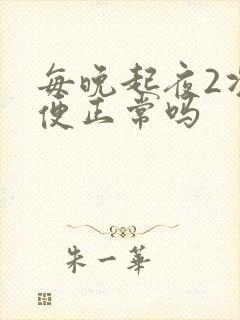 每晚起夜2次
便正常吗
朱一華